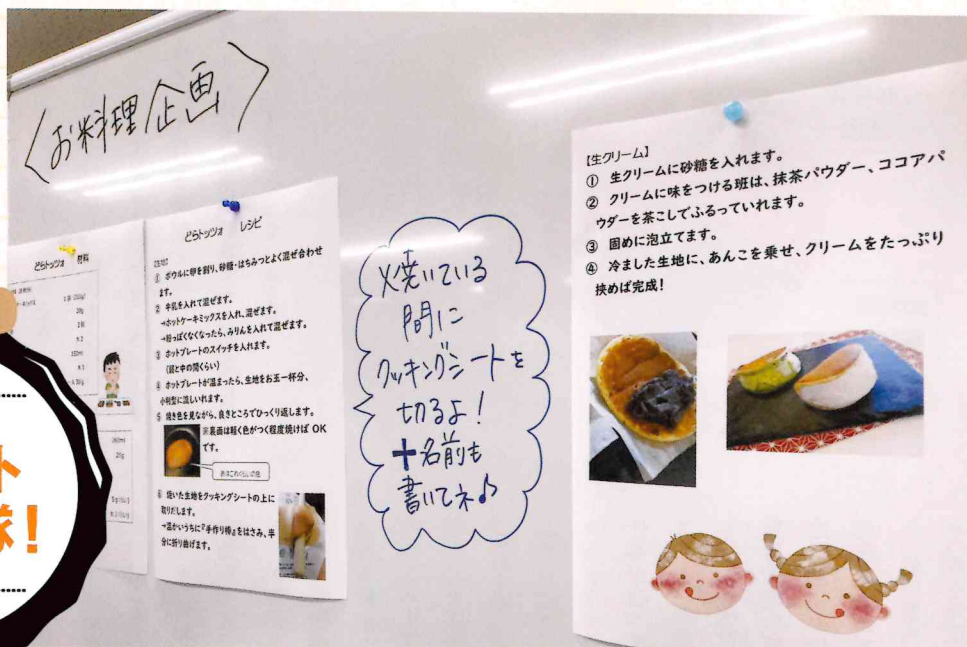 〈お料理企画〉
どらトッツォ 材料
200g
2個
150ml
どらトッツォ レシピ
① ボウルに卵を割り、砂糖・はちみつとよく混ぜ合わせ
ます。
② 牛乳を入れて混ぜます。
→ホットケーキミックスを入れ、混ぜます。
→粉っぽくなくなったら、みりんを入れて混ぜます。
③ ホットプレートのスイッチを入れます。
(弱と中の間くらい)
④ ホットプレートが温まったら、生地をお玉一杯分、
小判型に流しいれます。
⑤ 焼き色を見ながら、良きところでひっくり返します。
※裏面は軽く色がつく程度焼けば OK
です。
⑥ 焼いた生地をクッキングシートの上に
取りだします。
→温かいうちに『手作り棒』をはさみ、半
分に折り曲げます。
焼いている
間に
クッキングシートを
切るよ!
+名前も
書いてネ♪
【生クリーム】
① 生クリームに砂糖を入れます。
② クリームに味をつける班は、抹茶パウダー、ココアパ
ウダーを茶こしでふるっていれます。
③ 固めに泡立てます。
④ 冷ました生地に、あんこを乗せ、クリームをたっぷり
挟めば完成!
ト
隊!